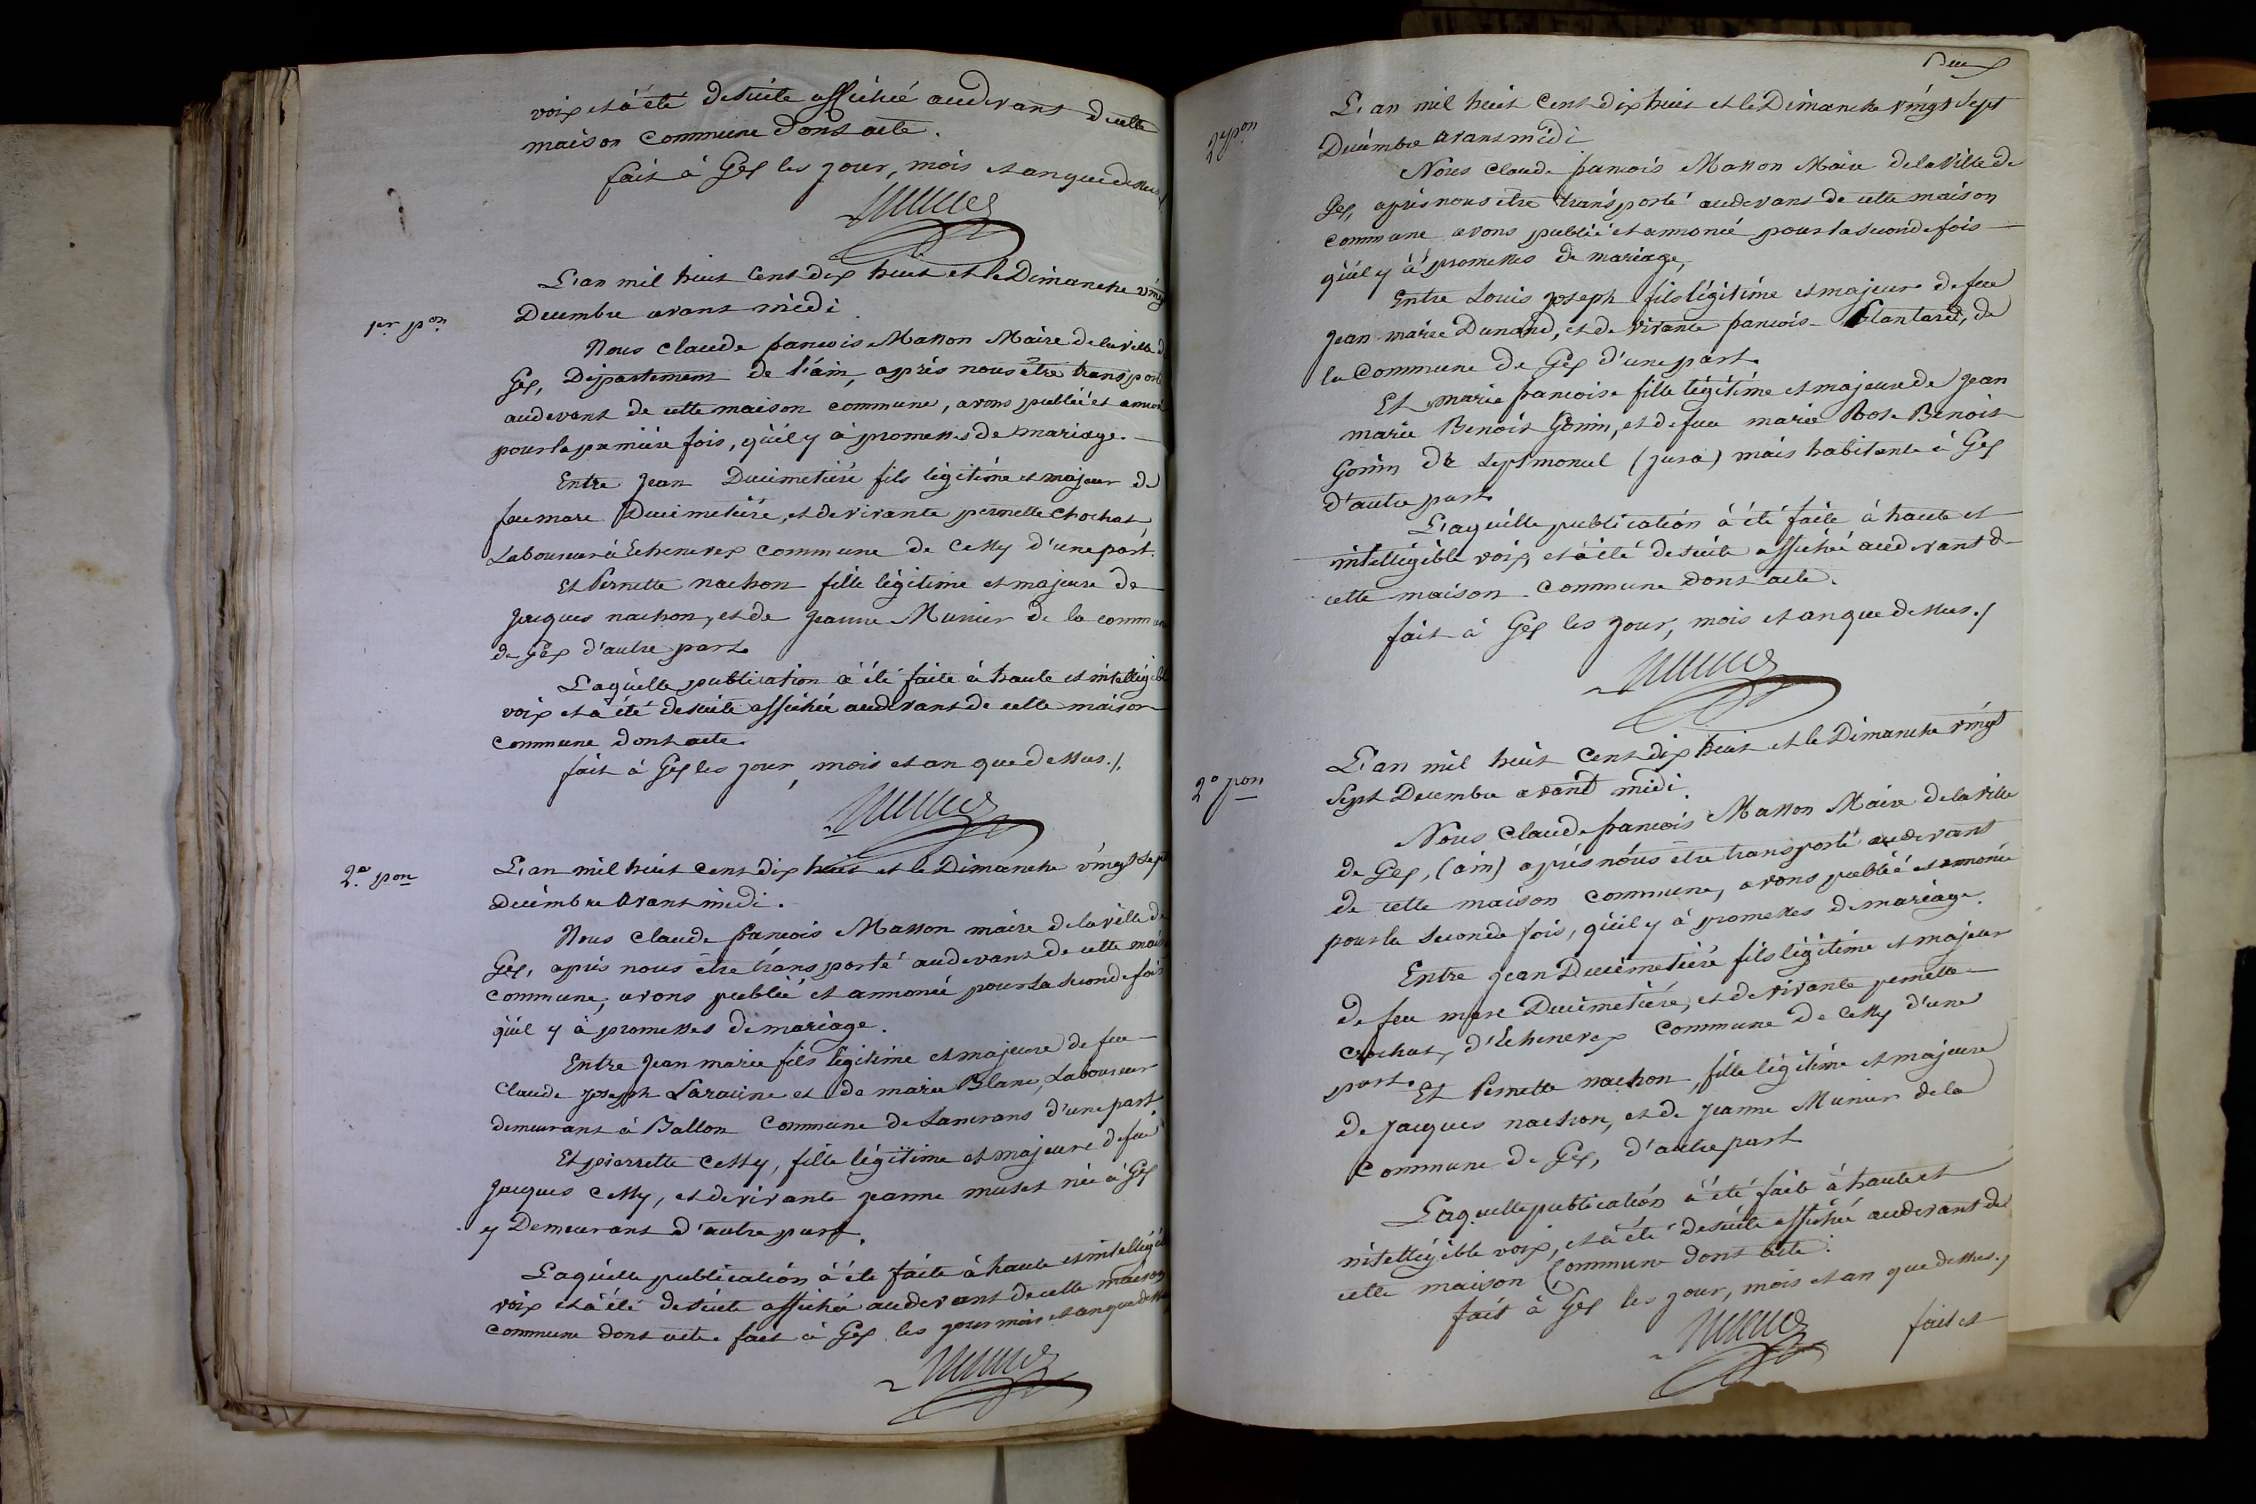 voix et à été desuite affichée audevant de cette
maison commune dont acte.
fait à Gex les jour, mois et an que dessus
L'an mil huit cent dix huit et le Dimanche vingt
1er pon
Decembre avant midi
Nous Claude françois Masson Maire de la ville de
Gex, Département de l'ain, après nous être transporté
audevant de cette maison commune, avons publié et annoncé
pour la première fois, qu'il y à promesses de mariage.
Entre Jean Ducimetière fils légitime et majeur de
feu marc Ducimetière, et de vivante pernette Crochat,
Laboureur à Echenevex commune de Cessy d'une part.
Et Pernette nachon fille légitime et majeure de
Jacques nachon, et de Jeanne Munier de la commune
de Gex d'autre part.
Laquelle publication à été faite à haute et intelligible
voix et à été desuite affichée audevant de cette maison
commune dont acte.
fait à Gex les jour, mois et an que dessus ./.
2e pon
L'an mil huit cent dix huit et le Dimanche vingt sept
Décembre avant midi.
Nous Claude françois Masson maire de la ville de
Gex, après nous être transporté audevant de cette maison
commune, avons publié et annoncé pour la seconde fois
qu'il y à promesses de mariage.
Entre Jean marie fils légitime et majeure de feu
Claude Joseph Laracine et de marie Blanc, Laboureur
demeurant à Ballon Commune de Lancrans d'une part.
Et pierrette Cessy, fille légitime et majeure de feu
Jacques Cessy, et de vivante jeanne muset née à Gex
y Demeurant d'autre part.
Laquelle publication à été faite à haute et intelligible
voix et à été desuite affichée audevant de cette maison
commune dont acte. fait à Gex les jour mois et an que dessus
Deux
2e pon
L'an mil huit cent dix huit et le Dimanche vingt sept
Décembre avant midi
Nous Claude françois Masson Maire de la Ville de
Gex, après nous être transporté audevant de cette maison
commune avons publié et annoncé pour la seconde fois
qu'il y à promesses de mariage,
Entre Louis Joseph fils légitime et majeur de feu
Jean-marie Dunand, et de vivante françoise Plantard, de
la Commune de Gex d'une part.
Et marie françoise fille légitime et majeure de Jean
marie Benoit Gonin, et de feu marie Rose Benoit
Gonin de Septmoncel (jura) mais habitante à Gex
d'autre part.
Laquelle publication à été faite à haute et
intelligible voix, et à été desuite affichée audevant de
cette maison commune dont acte.
fait à Gex les jour, mois et an que dessus ./
2e pon
L'an mil huit cent dix huit et le Dimanche vingt
Sept Decembre avant midi
Nous Claude françois Masson Maire de la ville
de Gex, (ain) après nous être transporté audevant
de cette maison commune, avons publié et annoncé
pour la seconde fois, qu'il y à promesses de mariage.
Entre Jean Ducimetière fils légitime et majeur
de feu marc Ducimetière, et de vivante pernette
Crochat, d'Echenevex commune de Cessy d'une
part. Et Pernette nachon, fille légitime et majeure
de Jacques nachon, et de Jeanne Munier de la
Commune de Gex, d'autre part
Laquelle publication à été faite à haute et
intelligible voix, et à été desuite affichée audevant de
cette maison Commune dont acte.
fait à Gex les jour, mois et an que dessus ./
fait et